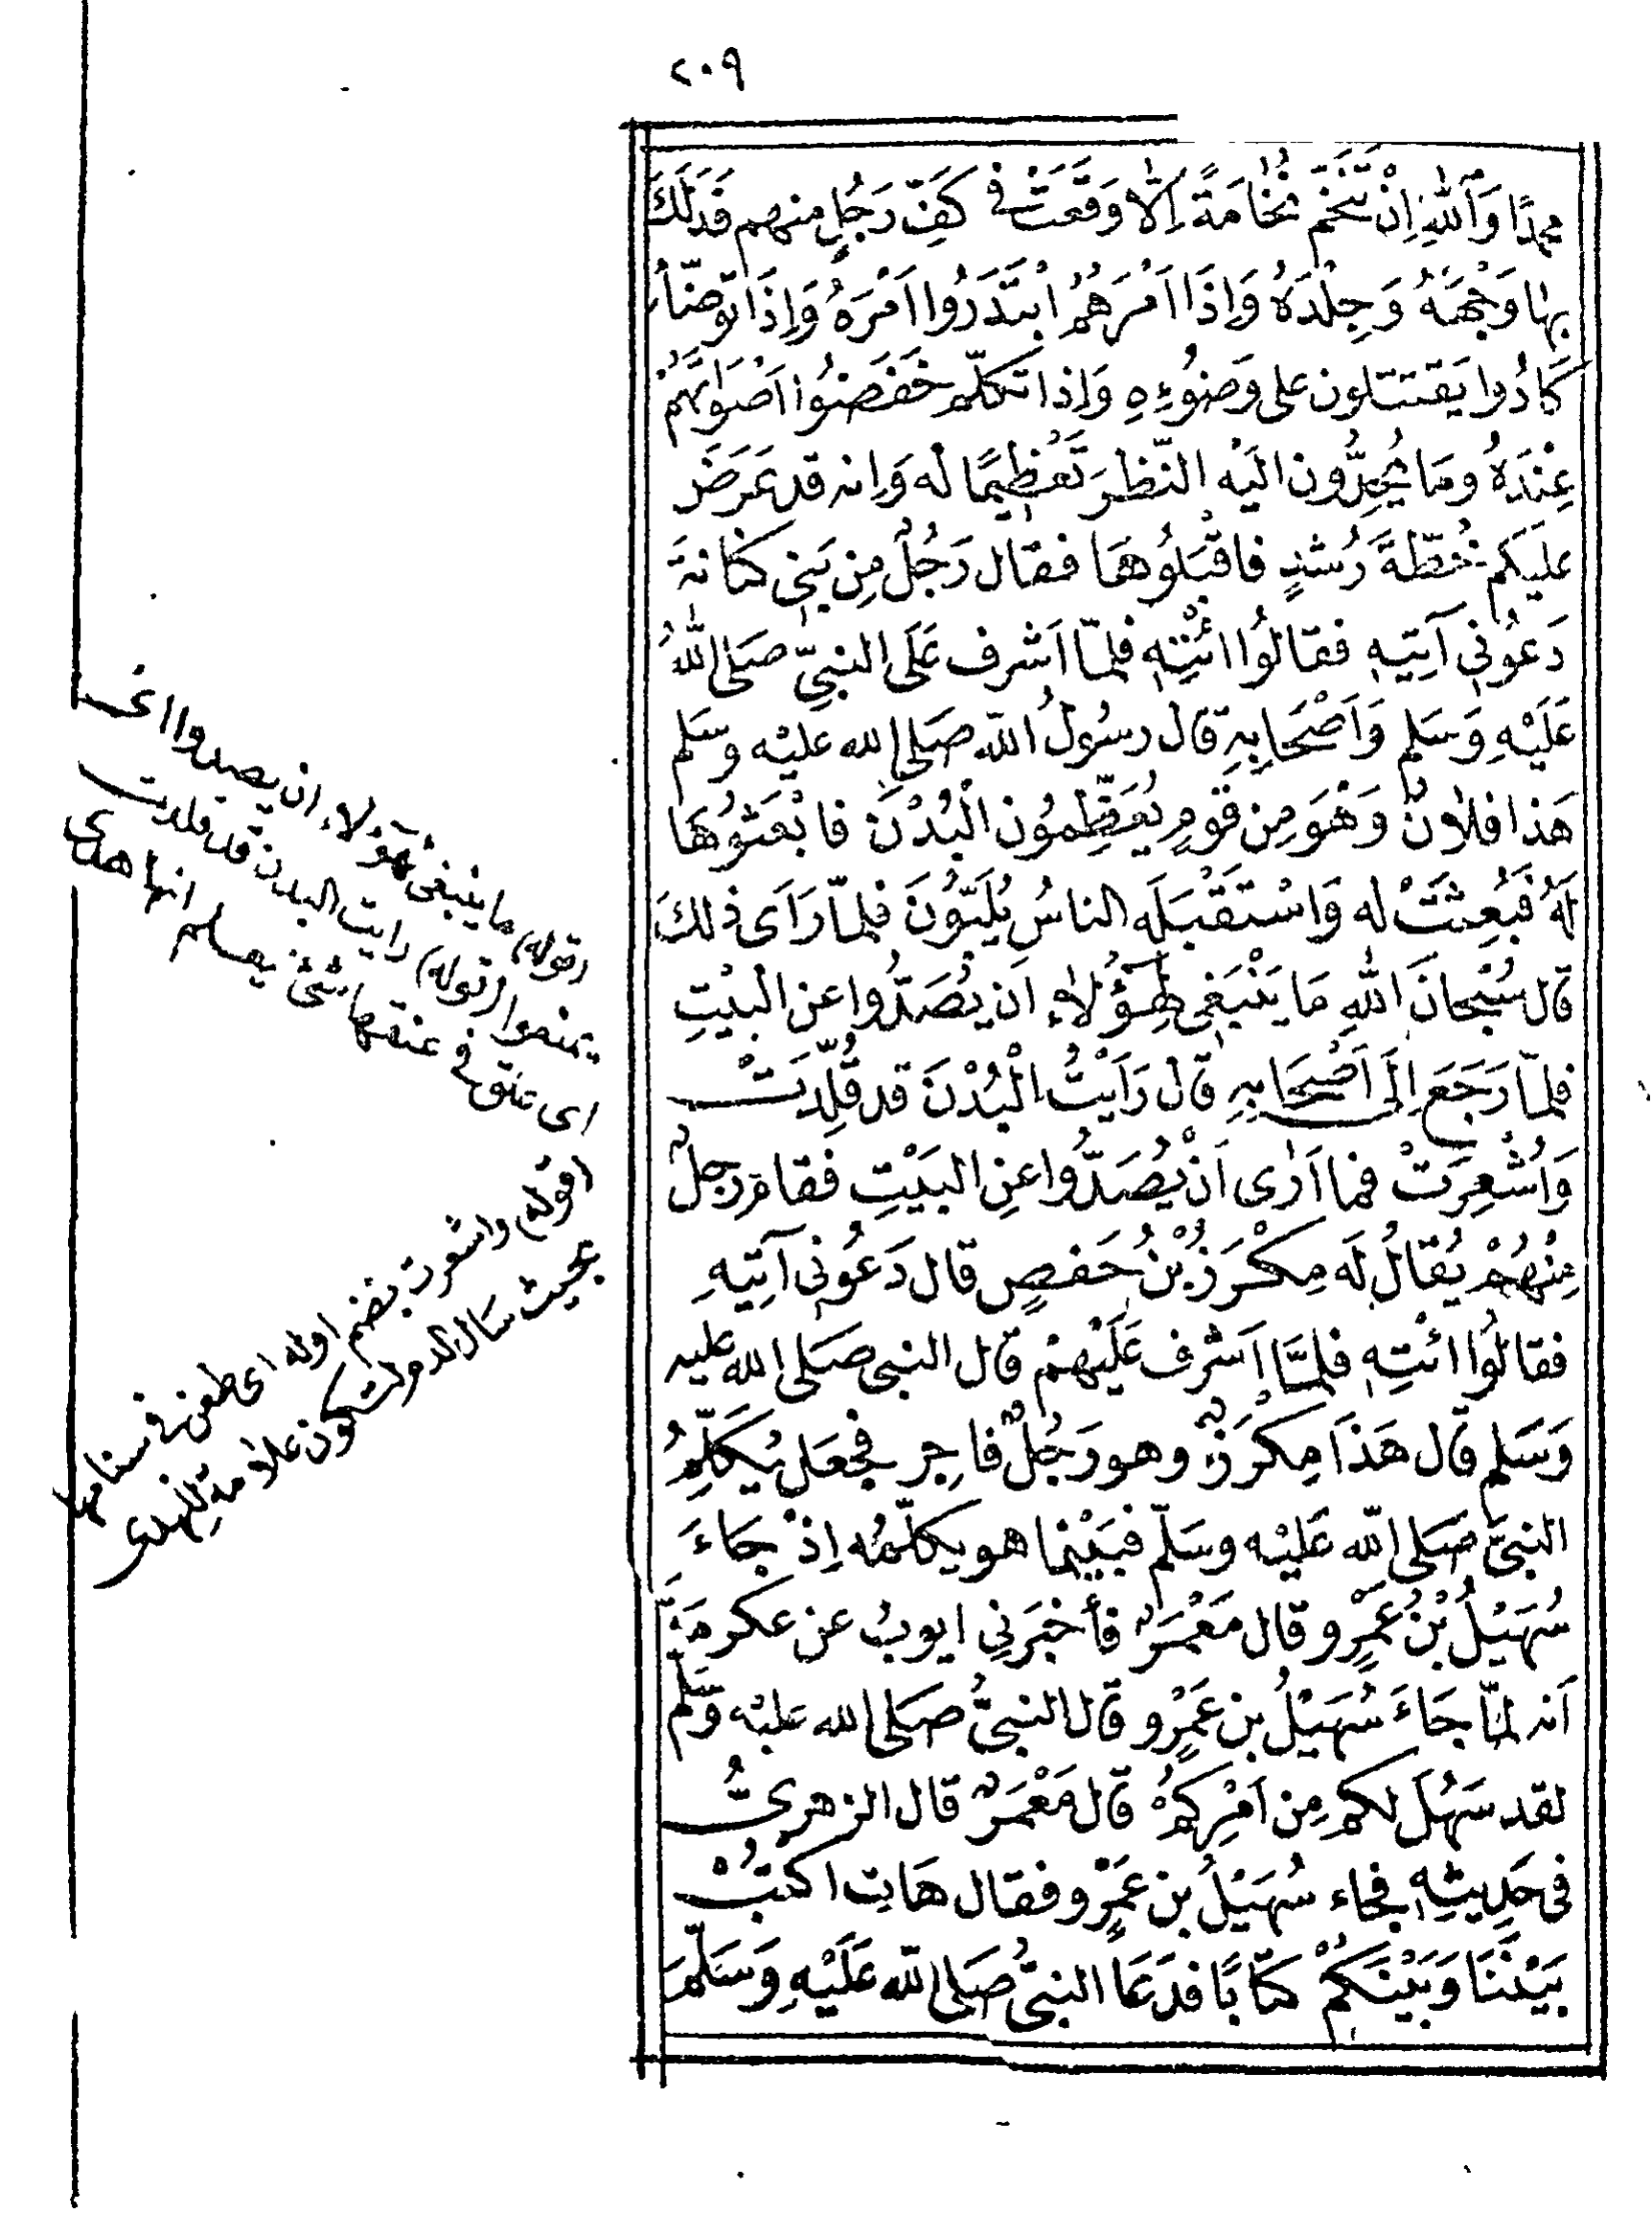 ٢٠٩
محمدًا وَاَللّٰهِ اِنْ تَنَخَّمَ نُخَامَةً اِلَّا وَقَعَتْ فِى كَفِّ رَجُلٍ منهم فَدَلَكَ
بها وَجْهَهُ وَجِلْدَهُ وَاِذَا اَمَرَهُمُ ابْتَدَرُوا اَمْرَهُ وَاِذَا تَوضّأ
كَادُوا يَقتَتلون على وَضُوْءِهِ وَاِذا تكلّم خَفَضُوا اَصْوَاتَهُمْ
عِنْدَهُ ومَا يُحِدُّون اليْه النّظرَ تَعْظِيمًا له وَاِنه قد عَرَضَ
عليكم خُطّةَ رُشدٍ فاقْبَلُوهَا فقال رَجُلٌ مِن بَنِى كنَانةَ
دَعُونِى آتِيهِ فقالُوا ائْتِهِ فلمّا اَشرف عَلَى النبىِّ صَلى اللهُ
عَلَيْهِ وَسَلم وَاَصْحَابِهِ قال رسُولُ اللّه صَلى الله عليْه وسَلم
هَذا فلانٌ وَهْوَ مِن قَومٍ يُعَظِّمُون الْبُدْنَ فابْعَثُوهَا
لَهُ فَبُعِثَتْ له وَاسْتَقْبَلَه الناسُ يُلَبُّونَ فلمّا رَاَى ذلكَ
قال سُبْحانَ اللّٰهِ مَا يَنْبَغِى لِهَؤُلاءِ اَن يُصَدُّوا عن الْبيْتِ
فلمّا رَجَعَ اِلَى اَصْحَابِهِ قال رَاَيْتُ الْبُدْنَ قد قُلِّدَتْ
وَاُشْعِرَتْ فما اَرٰى اَنْ يُصَدُّوا عنِ البَيْتِ فقامَ رجلٌ
مِنْهُمْ يُقالُ لَه مِكْرَزُ بْنُ حَفصٍ قال دَعُونِى آتِيهِ
فقالُوا ائْتِهِ فلمَّا اَشرف عَلَيْهمْ قال النبى صَلى الله عليه
وَسَلم قال هَذَا مِكْرَزٌ وهو رَجُلٌ فاجِر فجعَل يُكَلِّمُ
النبىَّ صَلى اللّه عَليْه وسَلّم فبَيْنما هو يكلّمُه اِذْ جَاءَ
سُهَيْلُ بْنُ عَمْرٍو قال مَعْمَرٌ فأخْبَرَنِى ايوبُ عن عكرمَةَ
اَنه لمّا جَاءَ سُهَيْلُ بن عَمْرٍو قال النبىُّ صَلى الله عليْه وَسَلّم
لقد سَهُلَ لكم مِن اَمْرِكُمْ قال مَعْمَرٌ قال الزهرىُّ
فى حَدِيثِهِ فجاء سُهَيْلُ بن عَمْرٍو فقال هَاتِ اكتُبْ
بَيْنَنَا وَبَيْنَكُمْ كتَابًا فدَعَا النبىُّ صَلى اللّه عَلَيْهِ وَسَلّمَ
(قوله) ما ينبغى لهؤلاء ان يصدوا اى
يمنعوا (قوله) رايت البدن قد قلدت
اى علق فى عنقها شئ يعلم انها هدى
(قوله) واشعرت بضم اوله اى طعن فى سنامها
بحيث سال الدم لتكون علامة للهدى